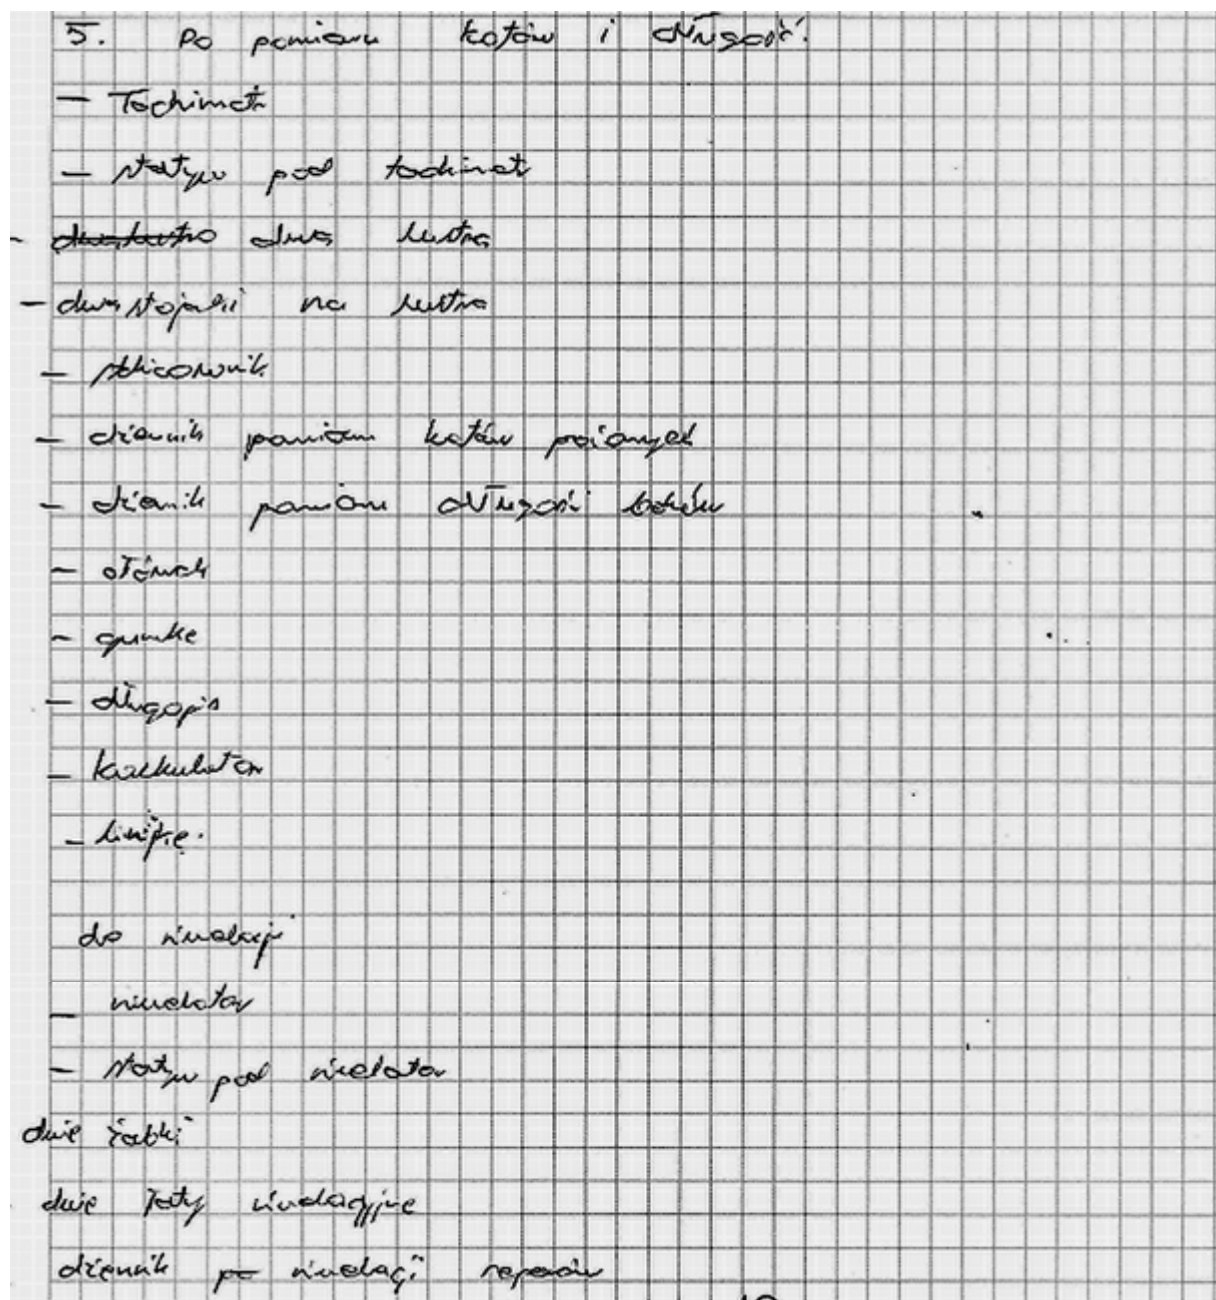 5. Po pomiaru kątów i długość.
- Tachimetr
- statyw pod tachimetr
- dwa lustro dwa lustra
- dwa stojaki na lustra
- szkicownik
- dziennik pomiaru kątów poziomych
- dziennik pomiaru długości boków
- ołówek
- gumkę
- długopis
- kalkulator
- linijkę.
do niwelacji
- niwelator
- statyw pod niwelator
dwie żabki
dwie łaty niwelacyjne
dziennik po niwelacji reperów